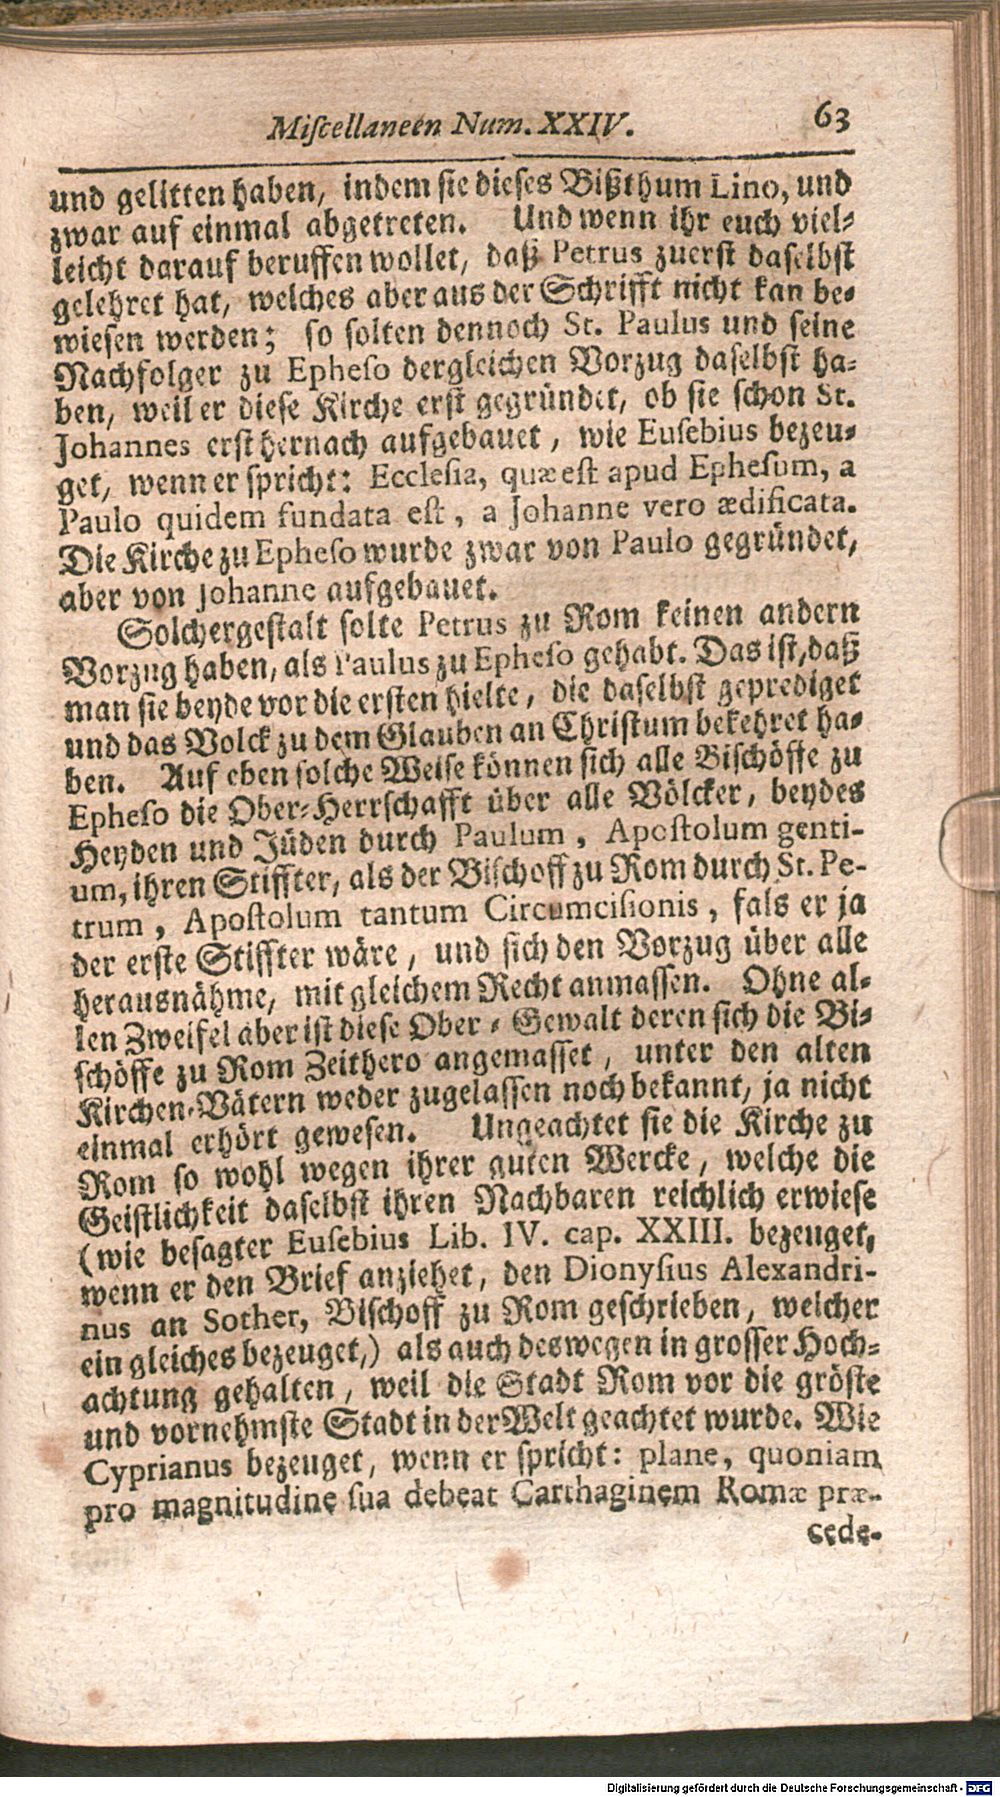 Miscellaneen Num. XXIV. 63
und gelitten haben, indem sie dieses Bißthum Lino, und
zwar auf einmal abgetreten. Und wenn ihr euch viel-
leicht darauf beruffen wollet, daß Petrus zuerst daselbst
gelehret hat, welches aber aus der Schrifft nicht kan be-
wiesen werden; so solten dennoch St. Paulus und seine
Nachfolger zu Epheso dergleichen Vorzug daselbst ha-
ben, weil er diese Kirche erst gegründet, ob sie schon St.
Johannes erst hernach aufgebauet, wie Eusebius bezeu-
get, wenn er spricht: Ecclesia, quæ est apud Ephesum, a
Paulo quidem fundata est, a Johanne vero ædificata.
Die Kirche zu Epheso wurde zwar von Paulo gegründet,
aber von Johanne aufgebauet.
Solchergestalt solte Petrus zu Rom keinen andern
Vorzug haben, als Paulus zu Epheso gehabt. Das ist, daß
man sie beyde vor die ersten hielte, die daselbst geprediget
und das Volck zu dem Glauben an Christum bekehret ha-
ben. Auf eben solche Weise können sich alle Bischöffe zu
Epheso die Ober-Herrschafft über alle Völcker, beydes
Heyden und Jüden durch Paulum, Apostolum genti-
um, ihren Stiffter, als der Bischoff zu Rom durch St. Pe-
trum, Apostolum tantum Circumcisionis, fals er ja
der erste Stiffter wäre, und sich den Vorzug über alle
herausnähme, mit gleichem Recht anmassen. Ohne al-
len Zweifel aber ist diese Ober-Gewalt deren sich die Bi-
schöffe zu Rom Zeithero angemasset, unter den alten
Kirchen-Vätern weder zugelassen noch bekannt, ja nicht
einmal erhört gewesen. Ungeachtet sie die Kirche zu
Rom so wohl wegen ihrer guten Wercke, welche die
Geistlichkeit daselbst ihren Nachbaren reichlich erwiese
(wie besagter Eusebius Lib. IV. cap. XXIII. bezeuget,
wenn er den Brief anziehet, den Dionysius Alexandri-
nus an Sother, Bischoff zu Rom geschrieben, welcher
ein gleiches bezeuget,) als auch deswegen in grosser Hoch-
achtung gehalten, weil die Stadt Rom vor die gröste
und vornehmste Stadt in der Welt geachtet wurde. Wie
Cyprianus bezeuget, wenn er spricht: plane, quoniam
pro magnitudine sua debeat Carthaginem Romæ præ-
cede-
Digitalisierung gefördert durch die Deutsche Forschungsgemeinschaft - DFG